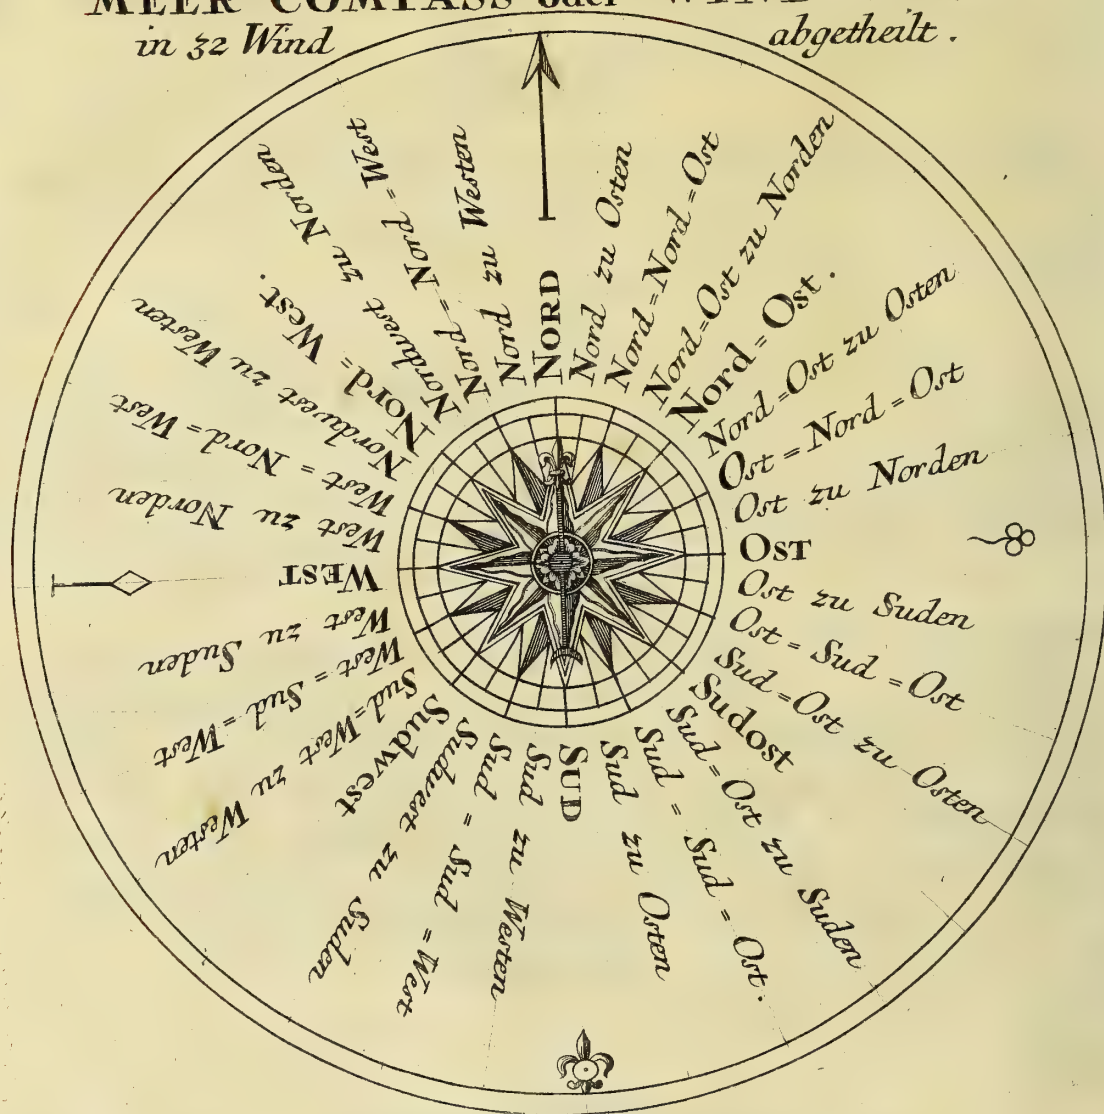 MEER COMPASS oder WIND
in 32 Wind abgetheilt.
NORD
Nord zu Osten
Nord=Nord=Ost
Nord=Ost zu Norden
Nord=Ost.
Nord=Ost zu Osten
Ost=Nord=Ost
Ost zu Norden
OST
Ost zu Suden
Ost=Sud=Ost
Sud=Ost zu Osten
Sudost
Sud=Ost zu Suden
Sud=Sud=Ost.
Sud zu Osten
SUD
Sud zu Westen
Sud=Sud=West
Sudwest zu Suden
Sudwest
Sud=West zu Westen
West=Sud=West
West zu Suden
WEST
West zu Norden
West=Nord=West
Nordwest zu Westen
Nord=West.
Nordwest zu Norden
Nord=Nord=West
Nord zu Westen